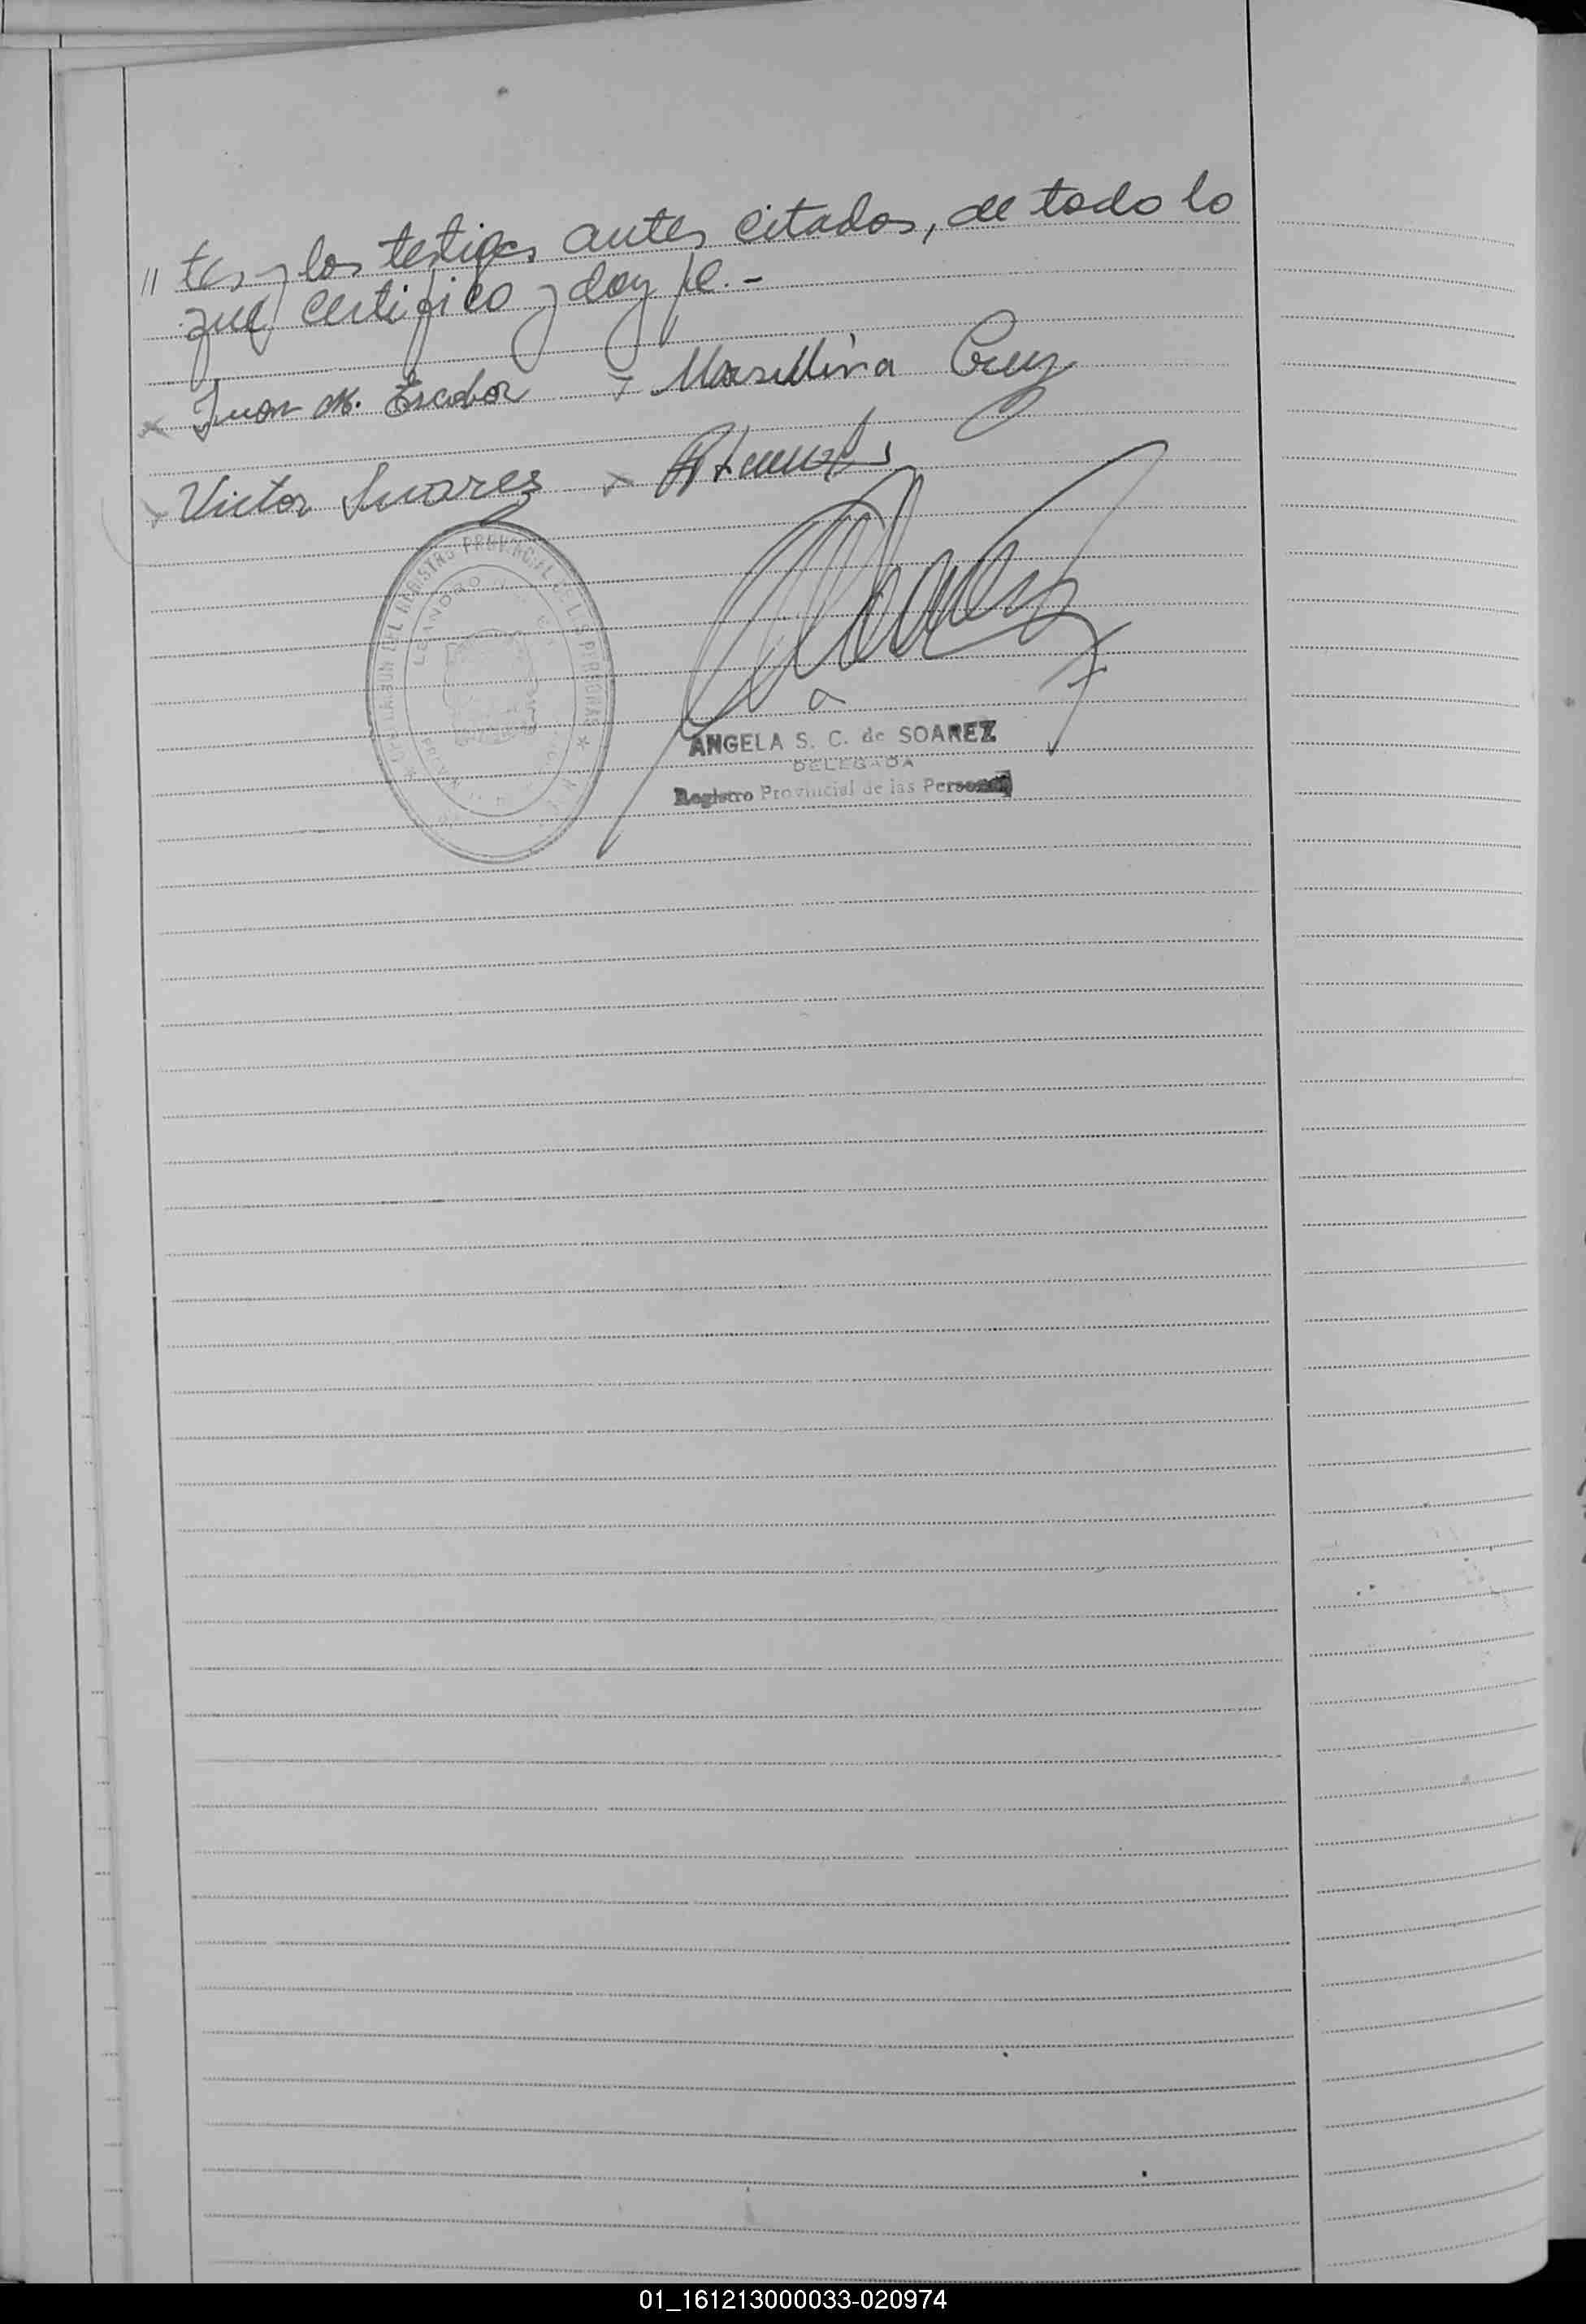 " tes y los testigos antes citados, de todo lo
que certifico y doy fe. -
x Juan M. Escobar x Marsellina Cruz
x Victor Suarez x
DEL REGISTRO PROVINCIAL DE LAS PERSONAS
LEANDRO N.
ANGELA S. C. de SOAREZ
DELEGADA
Registro Provincial de las Personas
01_161213000033-020974